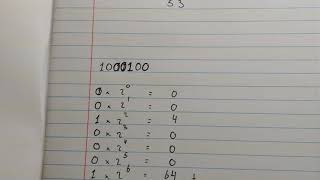 53
1000100
0 × 2^0 = 0
0 × 2^1 = 0
1 × 2^2 = 4
0 × 2^3 = 0
0 × 2^4 = 0
0 × 2^5 = 0
1 × 2^6 = 64 +